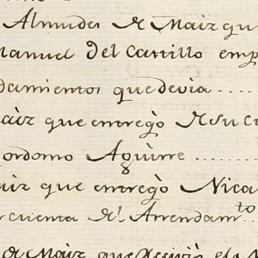 Almudes de Maiz qu
Manuel del Castillo emp
damientos que devia....
aiz que entregò de su cu
ordomo Aguirre.......
aiz que entregò Nica
cuenta del Arrendamto
de Maiz que recivió el M